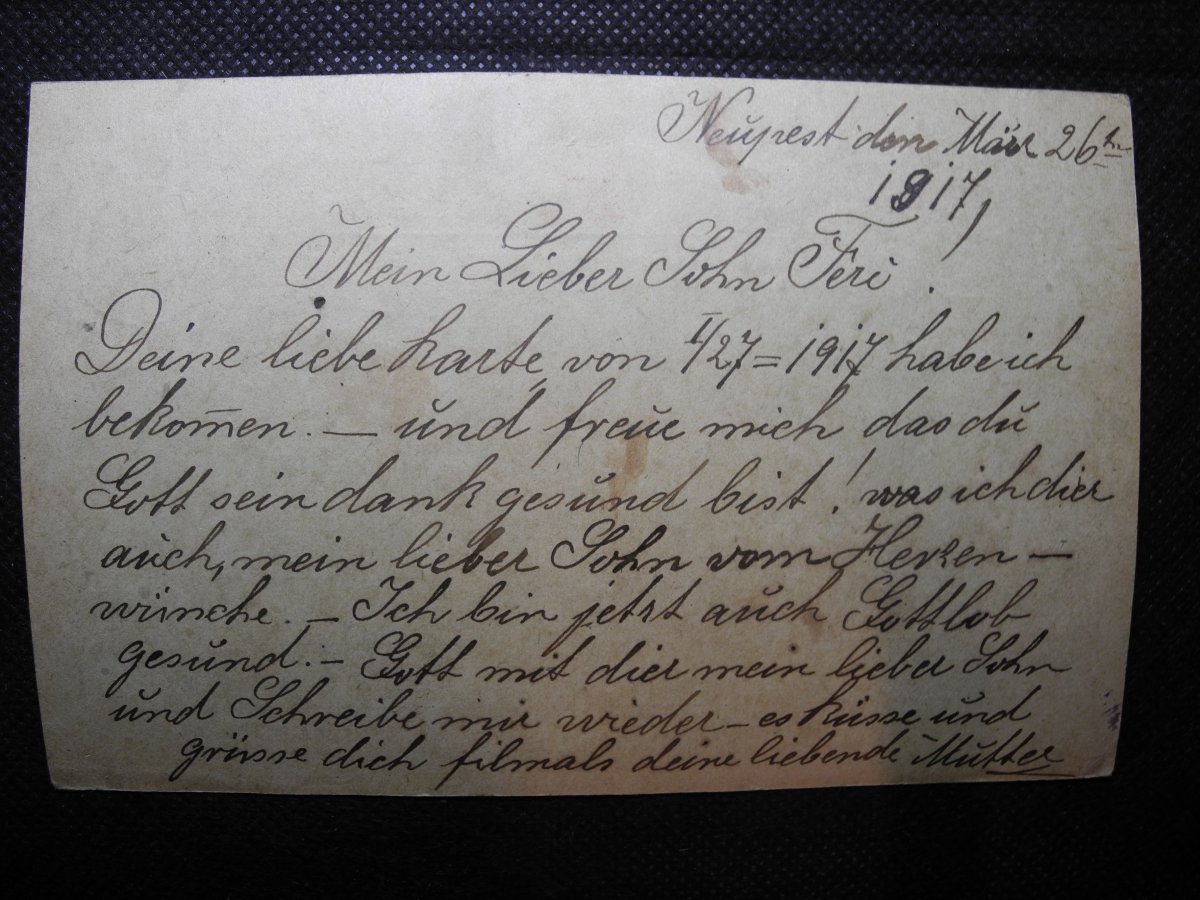 Neupest den März 26ten
1917,
Mein Lieber Sohn Feri.
Deine liebe Karte, von I/27=1917 habe ich
bekom̅en. — und freue mich das du
Gott sein dank gesund bist! was ich dier
auch, mein lieber Sohn vom Herzen —
wünche. — Ich bin jetzt auch Gottlob
gesund. — Gott mit dier mein lieber Sohn
und Schreibe mir wieder — es küsse und
grüsse dich filmals deine liebende Mutter